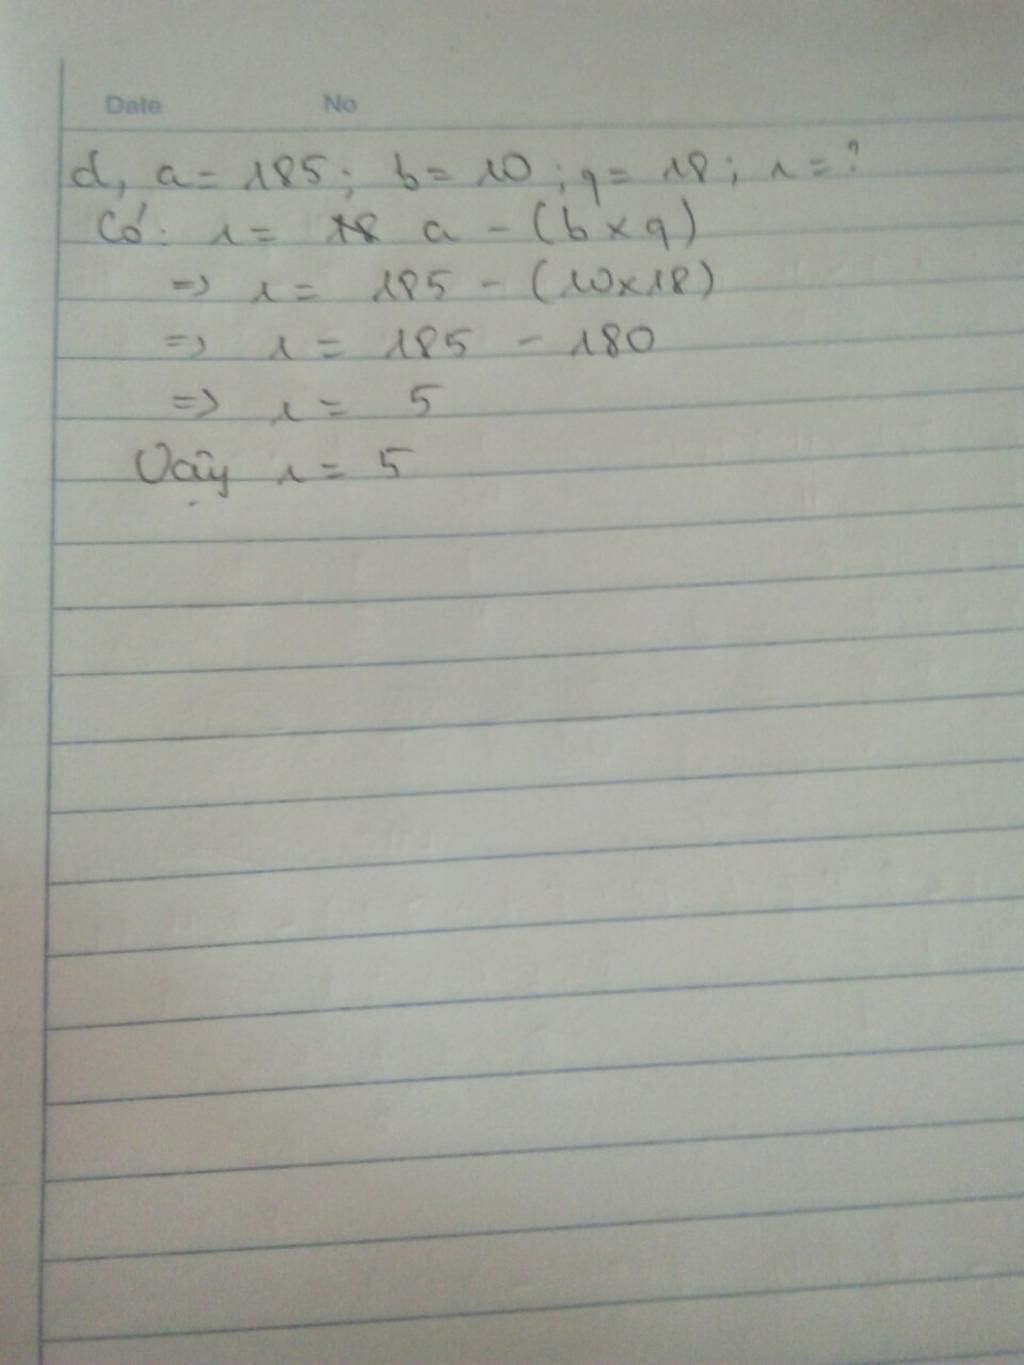 Date No
d, a = 185; b = 10; q = 18; r = ?
Có: r = a - (b x q)
=> r = 185 - (10x18)
=> r = 185 - 180
=> r = 5
Vậy r = 5